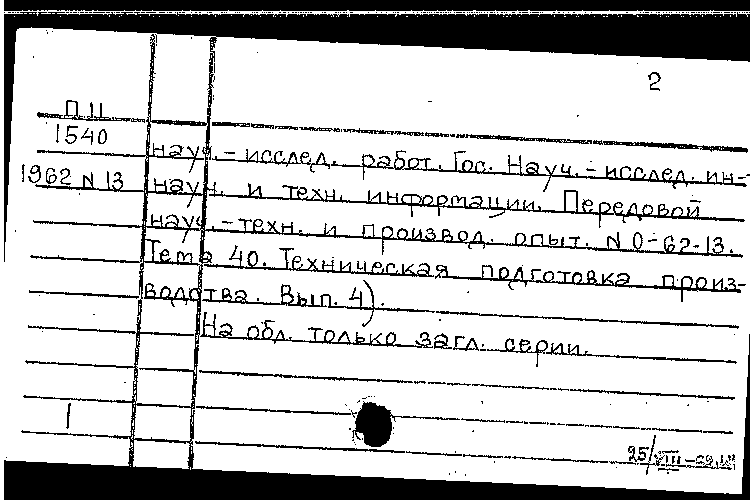 2
П 11
1540
1962 N 13
науч.-исслед. работ. Гос. Науч.-исслед. ин-т
науч. и техн. информации. Передовой
науч.-техн. и производ. опыт. N 0-62-13.
Тема 40. Техническая подготовка произ-
водства. Вып. 4).
На обл. только загл. серии.
1
25/VIII